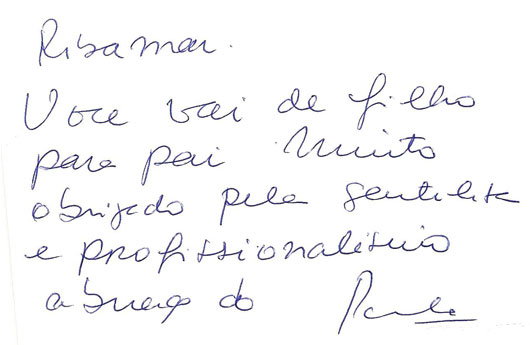 Ribamar.
Voce vai de filho
para pai Muito
obrigado pela gentileza
e profissionalismo
abraço do Paulo